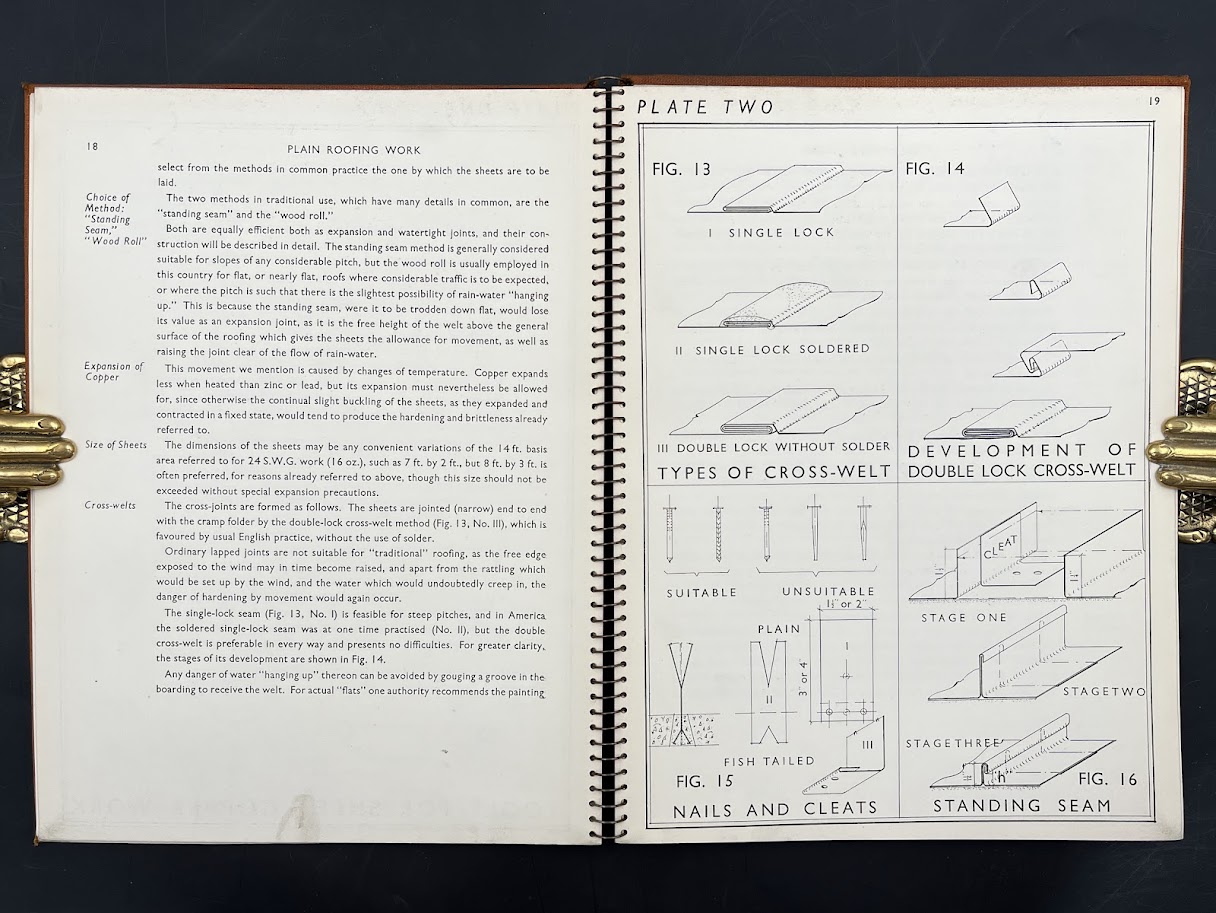 18
PLAIN ROOFING WORK
select from the methods in common practice the one by which the sheets are to be
laid.
Choice of
Method:
"Standing
Seam,"
"Wood Roll"
The two methods in traditional use, which have many details in common, are the
"standing seam" and the "wood roll."
Both are equally efficient both as expansion and watertight joints, and their con-
struction will be described in detail. The standing seam method is generally considered
suitable for slopes of any considerable pitch, but the wood roll is usually employed in
this country for flat, or nearly flat, roofs where considerable traffic is to be expected,
or where the pitch is such that there is the slightest possibility of rain-water "hanging
up." This is because the standing seam, were it to be trodden down flat, would lose
its value as an expansion joint, as it is the free height of the welt above the general
surface of the roofing which gives the sheets the allowance for movement, as well as
raising the joint clear of the flow of rain-water.
Expansion of
Copper
This movement we mention is caused by changes of temperature. Copper expands
less when heated than zinc or lead, but its expansion must nevertheless be allowed
for, since otherwise the continual slight buckling of the sheets, as they expanded and
contracted in a fixed state, would tend to produce the hardening and brittleness already
referred to.
Size of Sheets
The dimensions of the sheets may be any convenient variations of the 14 ft. basis
area referred to for 24 S.W.G. work (16 oz.), such as 7 ft. by 2 ft., but 8 ft. by 3 ft. is
often preferred, for reasons already referred to above, though this size should not be
exceeded without special expansion precautions.
Cross-welts
The cross-joints are formed as follows. The sheets are jointed (narrow) end to end
with the cramp folder by the double-lock cross-welt method (Fig. 13, No. III), which is
favoured by usual English practice, without the use of solder.
Ordinary lapped joints are not suitable for "traditional" roofing, as the free edge
exposed to the wind may in time become raised, and apart from the rattling which
would be set up by the wind, and the water which would undoubtedly creep in, the
danger of hardening by movement would again occur.
The single-lock seam (Fig. 13, No. I) is feasible for steep pitches, and in America
the soldered single-lock seam was at one time practised (No. II), but the double
cross-welt is preferable in every way and presents no difficulties. For greater clarity,
the stages of its development are shown in Fig. 14.
Any danger of water "hanging up" thereon can be avoided by gouging a groove in the
boarding to receive the welt. For actual "flats" one authority recommends the painting
PLATE TWO
19
FIG. 13
I SINGLE LOCK
II SINGLE LOCK SOLDERED
III DOUBLE LOCK WITHOUT SOLDER
TYPES OF CROSS-WELT
FIG. 14
DEVELOPMENT OF
DOUBLE LOCK CROSS-WELT
SUITABLE
UNSUITABLE
1½" or 2"
PLAIN
I
3" or 4"
II
III
FISH TAILED
FIG. 15
NAILS AND CLEATS
CLEAT
STAGE ONE
STAGE TWO
STAGE THREE
"h"
FIG. 16
STANDING SEAM